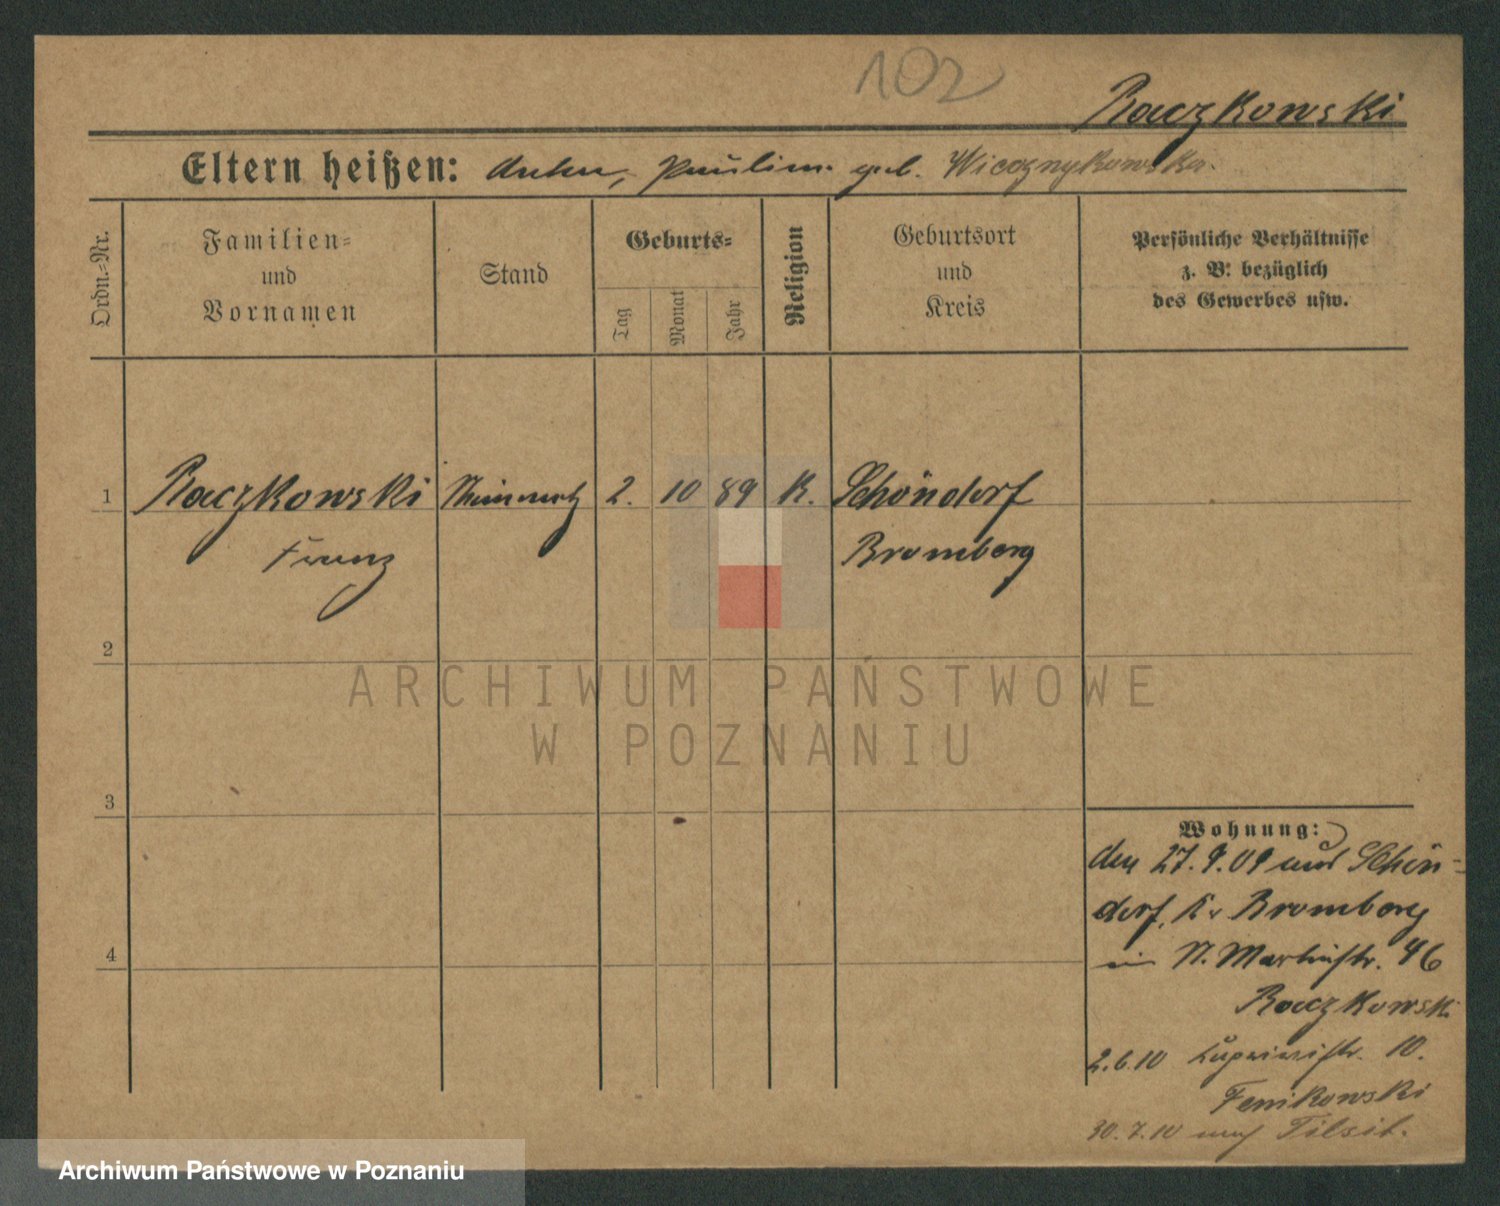 102
Raczkowski
Eltern heißen: Anton, Paulina geb. Wicoznykowska.
Ordn.-Nr.
Familien-
und
Vornamen
Stand
Geburts-
Tag
Monat
Jahr
Religion
Geburtsort
und
Kreis
Persönliche Verhältnisse
z. B. bezüglich
des Gewerbes usw.
1 Raczkowski 2. 10 89 K. Schöndorf
Franz Bromberg
2
ARCHIWUM PAŃSTWOWE
W POZNANIU
3
Wohnung:
den 27.9.09 aus Schön-
dorf, Kr Bromberg
in St. Martinstr. 46
Raczkowski
4
2.6.10 10.
Fenikowski
30.7.10 nach Tilsit.
Archiwum Państwowe w Poznaniu